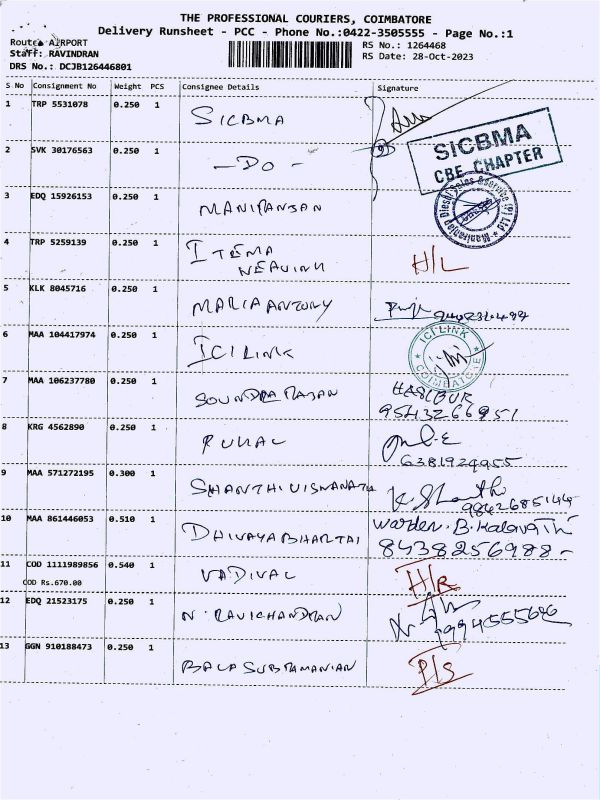 THE PROFESSIONAL COURIERS, COIMBATORE
Delivery Runsheet - PCC - Phone No.:0422-3505555 - Page No.:1
Route: AIRPORT
RS No.: 1264468
Staff: RAVINDRAN
RS Date: 28-Oct-2023
DRS No.: DCJB126446801
S No Consignment No Weight PCS Consignee Details Signature
1 TRP 5531078 0.250 1 SICBMA
SICBMA
CBE CHAPTER
2 SVK 30176563 0.250 1 - DO -
3 EDQ 15926153 0.250 1 MANIRANJAN
4 TRP 5259139 0.250 1 ITEMA H/L
5 KLK 8045716 0.250 1 MARIA ANTONY
6 MAA 104417974 0.250 1 ICI LINK
ICI LINK
COIMBATORE
7 MAA 106237780 0.250 1 SOUNDRARAJAN
9543266951
8 KRG 4562890 0.250 1
6381929955
9 MAA 571272195 0.300 1 SHANTHI VISWANATH K. Shanthi
9842685144
10 MAA 861446053 0.510 1 DHIVAYABHARTAI Warden. B. Kalavathi
8438256988 -
11 COD 1111989856 0.540 1 VADIVAL H/R
COD Rs.670.00
12 EDQ 21523175 0.250 1 N. RAVICHANDRAN
13 GGN 910188473 0.250 1 BALASUBRAMANIAN P/S